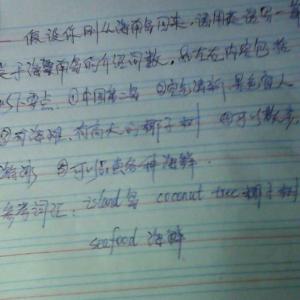 假设你刚从海南岛回来,请用英语写一篇
关于海南岛的介绍词数,80左右内容包括
以下要点:①中国第二岛 ②空气清新,景色宜人
③有海滩,有高大的椰子树 ④可以散步,
游泳 ⑤可以品尝各种海鲜.
参考词汇: island岛 coconut tree 椰子树
seafood 海鲜